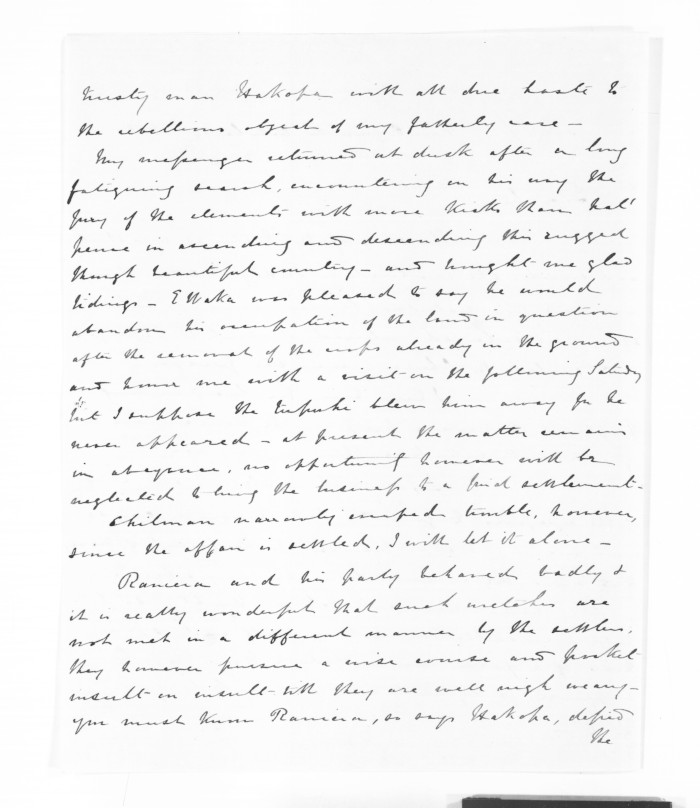 trusty man Hakopa with all due haste to
the rebellious object of my fatherly care -
My messenger returned at dusk after a long
fatiguing search, encountering on his way the
fury of the elements with more kicks than half
pence in ascending and descending this rugged
though beautiful country - and brought me glad
tidings - E Waka was pleased to say he would
abandon his occupation of the land in question
after the removal of the crops already in the ground
and honor me with a visit on the following Saturday
but I suppose the tupuhi blew him away for he
never appeared - at present the matter remains
in abeyance, no opportunity however will be
neglected to bring the business to a final settlement -
Chilman narrowly escaped trouble, however,
since the affair is settled, I will let it alone -
Raniera and his party behaved badly &
it is really wonderful that such wretches are
not met in a different manner by the settlers.
they however pursue a wise course and pocket
insult on insult till they are well nigh weary -
you must know Raniera, so says Hakopa, defied
the